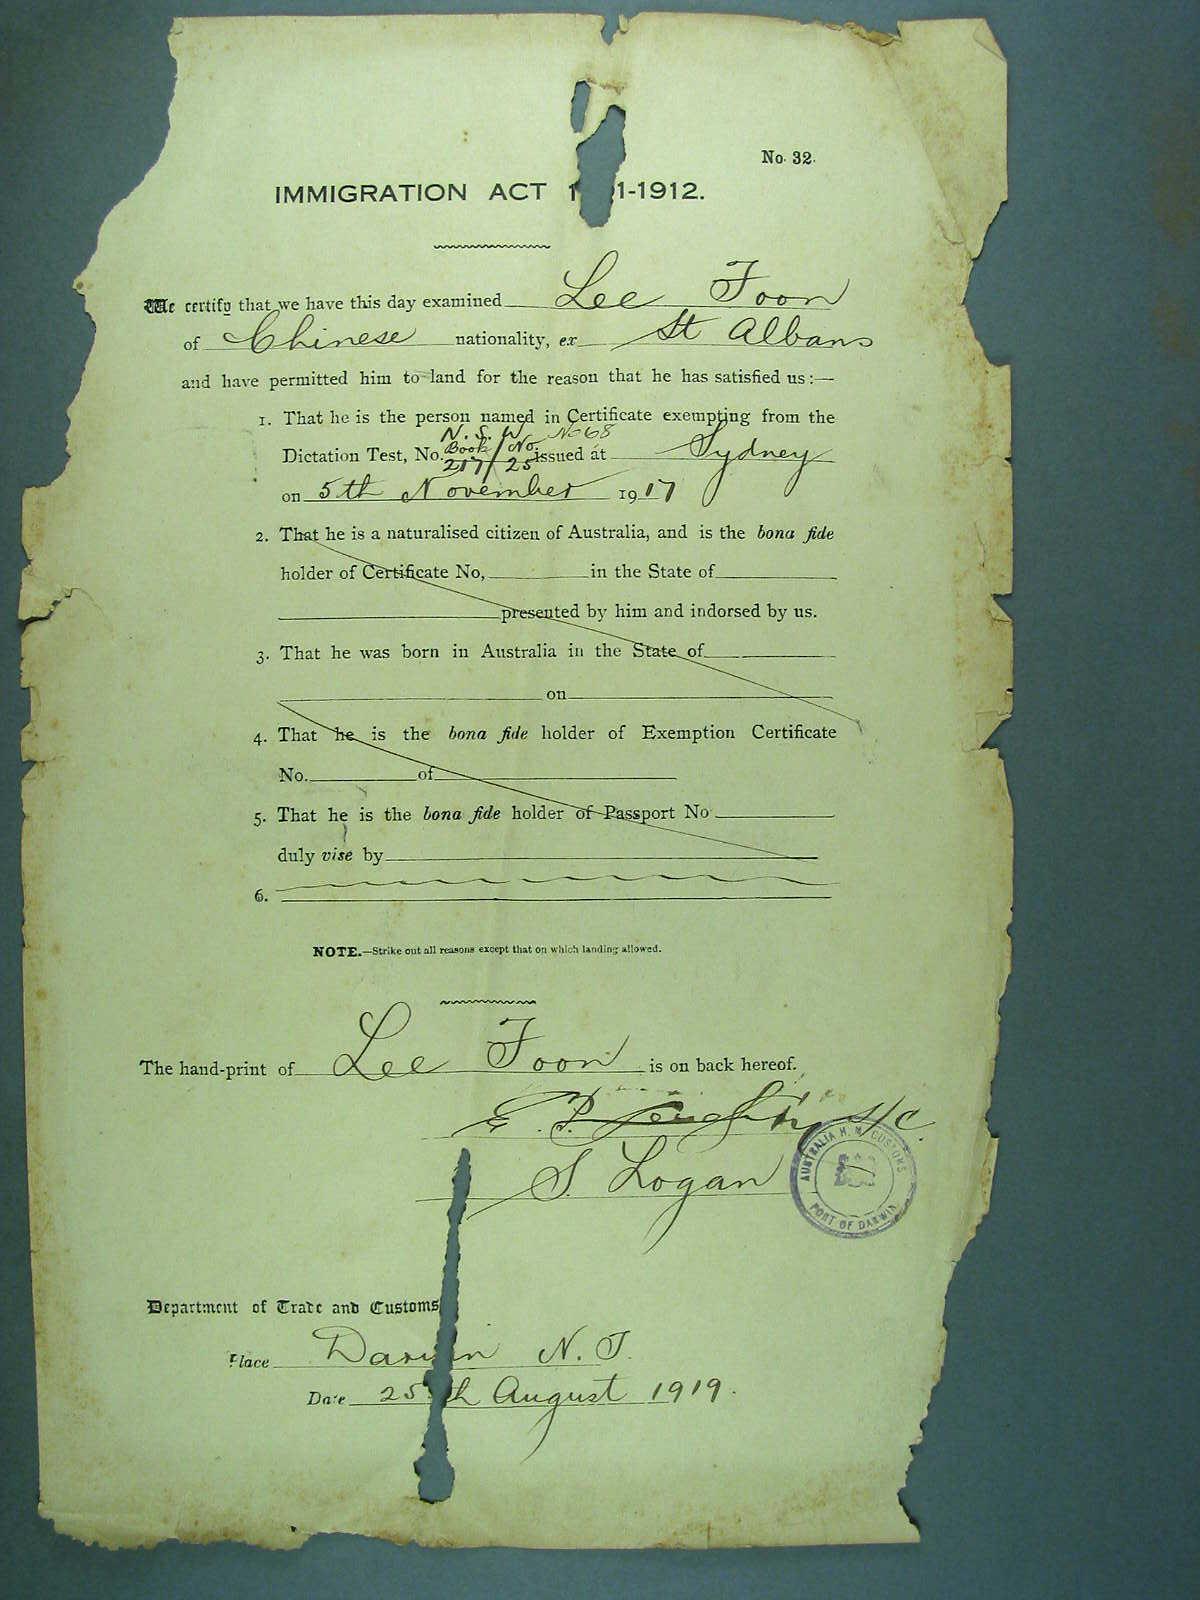 No. 32.
IMMIGRATION ACT 1 1-1912.
We certify that we have this day examined Lee Foon
of Chinese nationality, ex St Albans
and have permitted him to land for the reason that he has satisfied us:—
1. That he is the person named in Certificate exempting from the
N.S.W No 68
Dictation Test, No. Book 217/No. 25 issued at Sydney
on 5th November 1917
2. That he is a naturalised citizen of Australia, and is the bona fide
holder of Certificate No, in the State of
presented by him and indorsed by us.
3. That he was born in Australia in the State of
on
4. That he is the bona fide holder of Exemption Certificate
No. of
5. That he is the bona fide holder of Passport No
duly vise by
6.
NOTE.—Strike out all reasons except that on which landing allowed.
The hand-print of Lee Foon is on back hereof.
S/C.
S. Logan
AUSTRALIA H. M. CUSTOMS
PORT OF DARWIN
Department of Trade and Customs
Place Darwin N.T.
Date 25th August 1919.